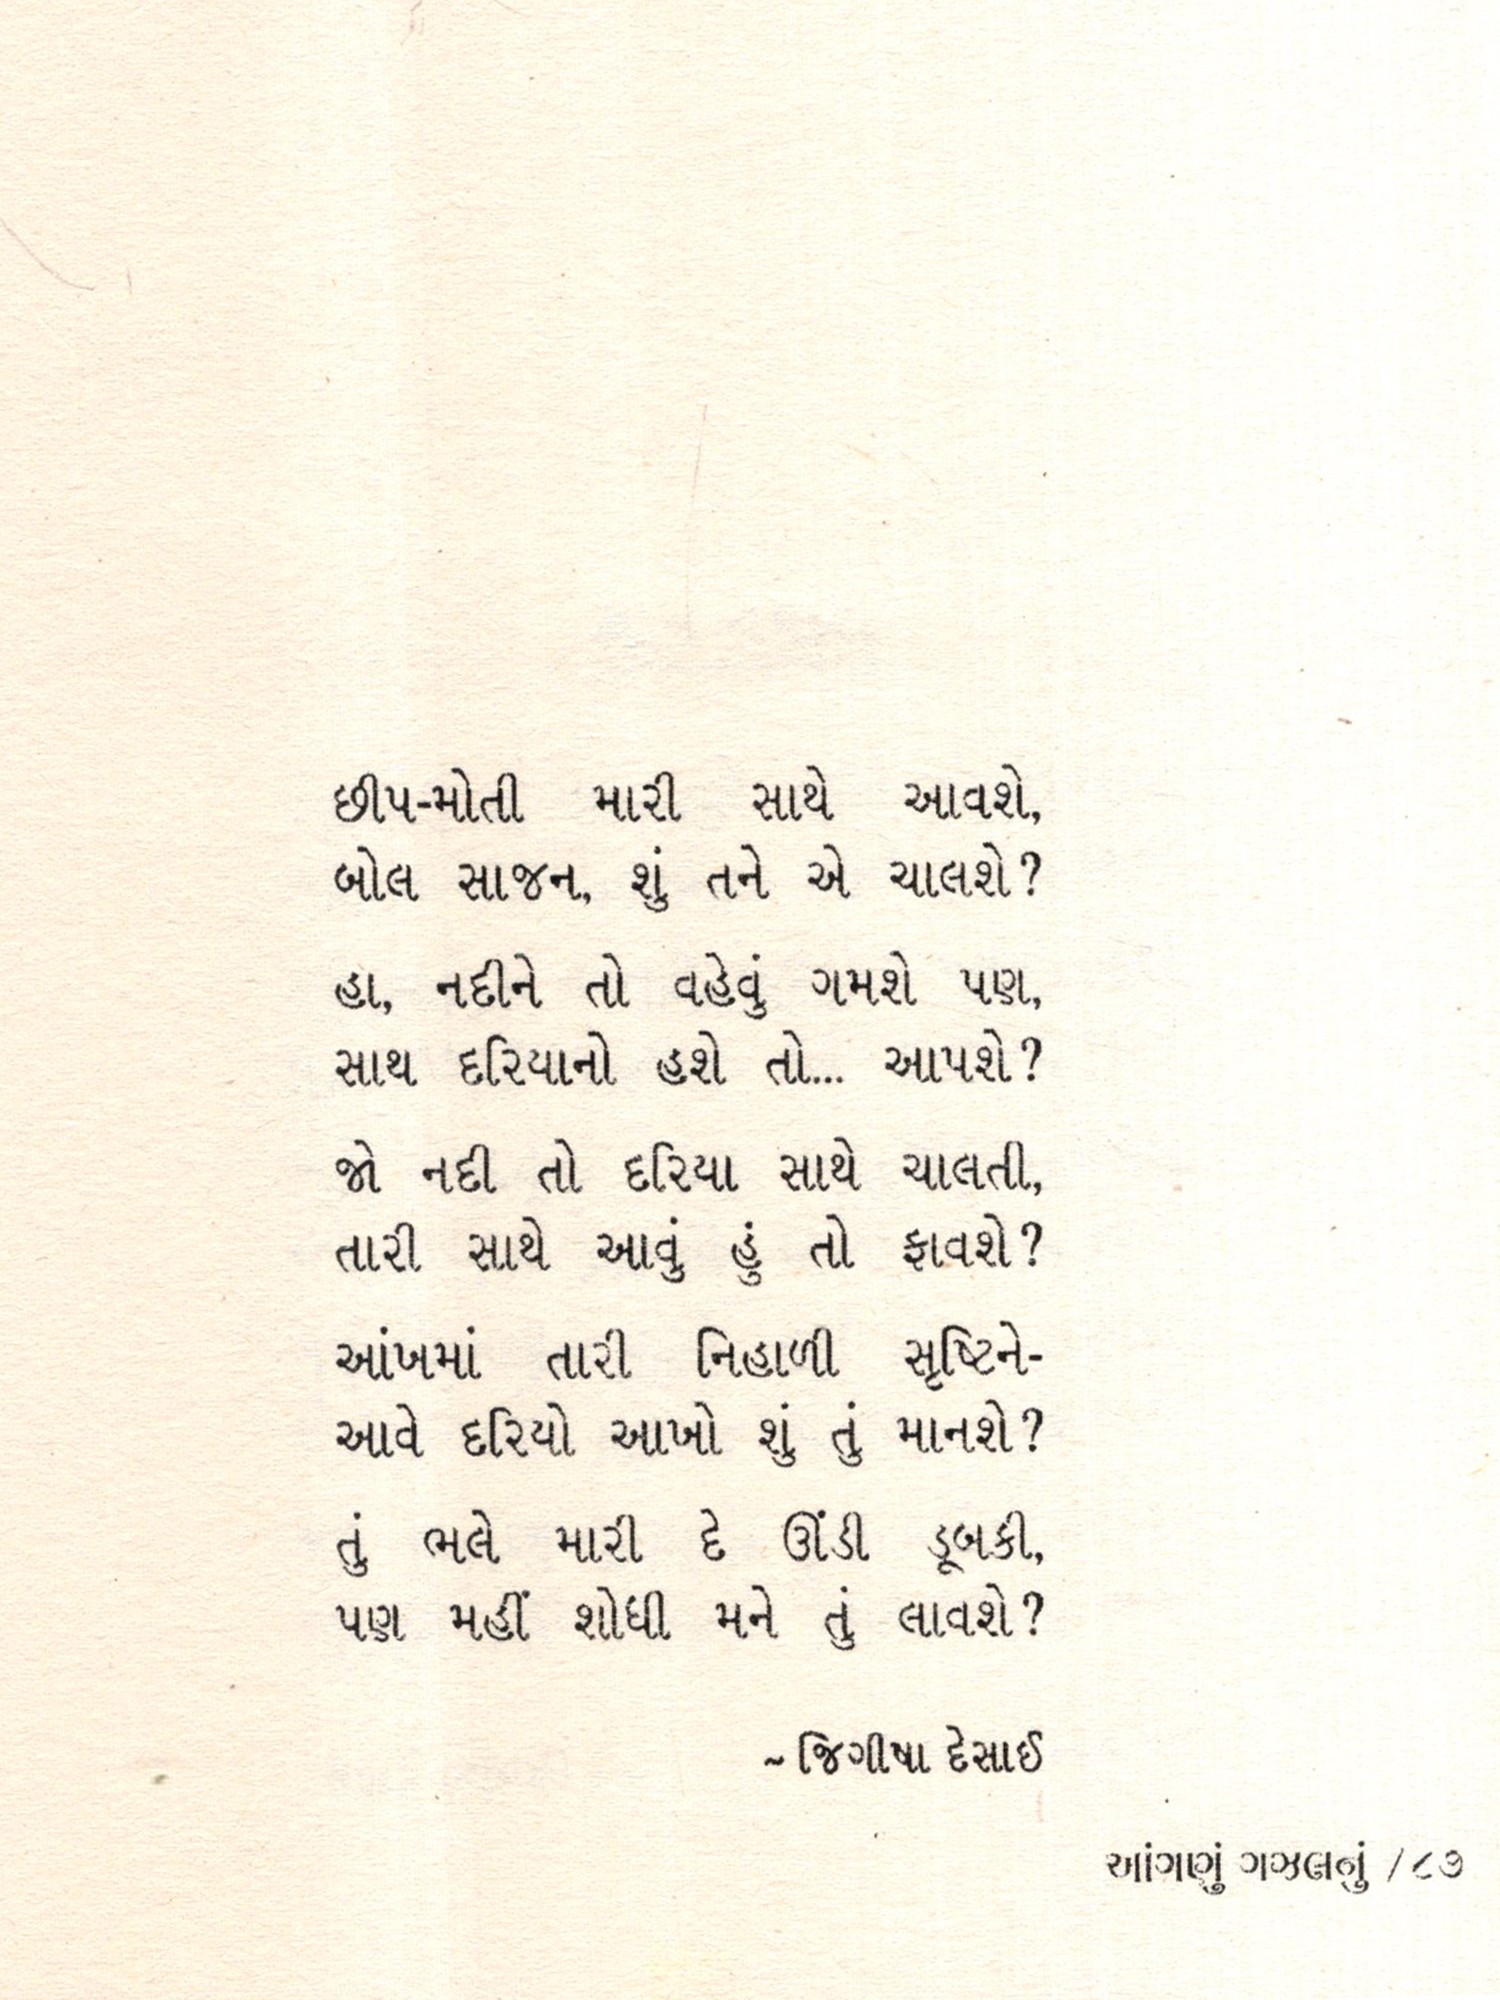 છીપ-મોતી મારી સાથે આવશે,
બોલ સાજન, શું તને એ ચાલશે?
હા, નદીને તો વહેવું ગમશે પણ,
સાથ દરિયાનો હશે તો... આપશે?
જો નદી તો દરિયા સાથે ચાલતી,
તારી સાથે આવું હું તો ફાવશે?
આંખમાં તારી નિહાળી સૃષ્ટિને-
આવે દરિયો આખો શું તું માનશે?
તું ભલે મારી દે ઊંડી ડૂબકી,
પણ મહીં શોધી મને તું લાવશે?
~ જિગીષા દેસાઈ
આંગણું ગઝલનું / ૮૭